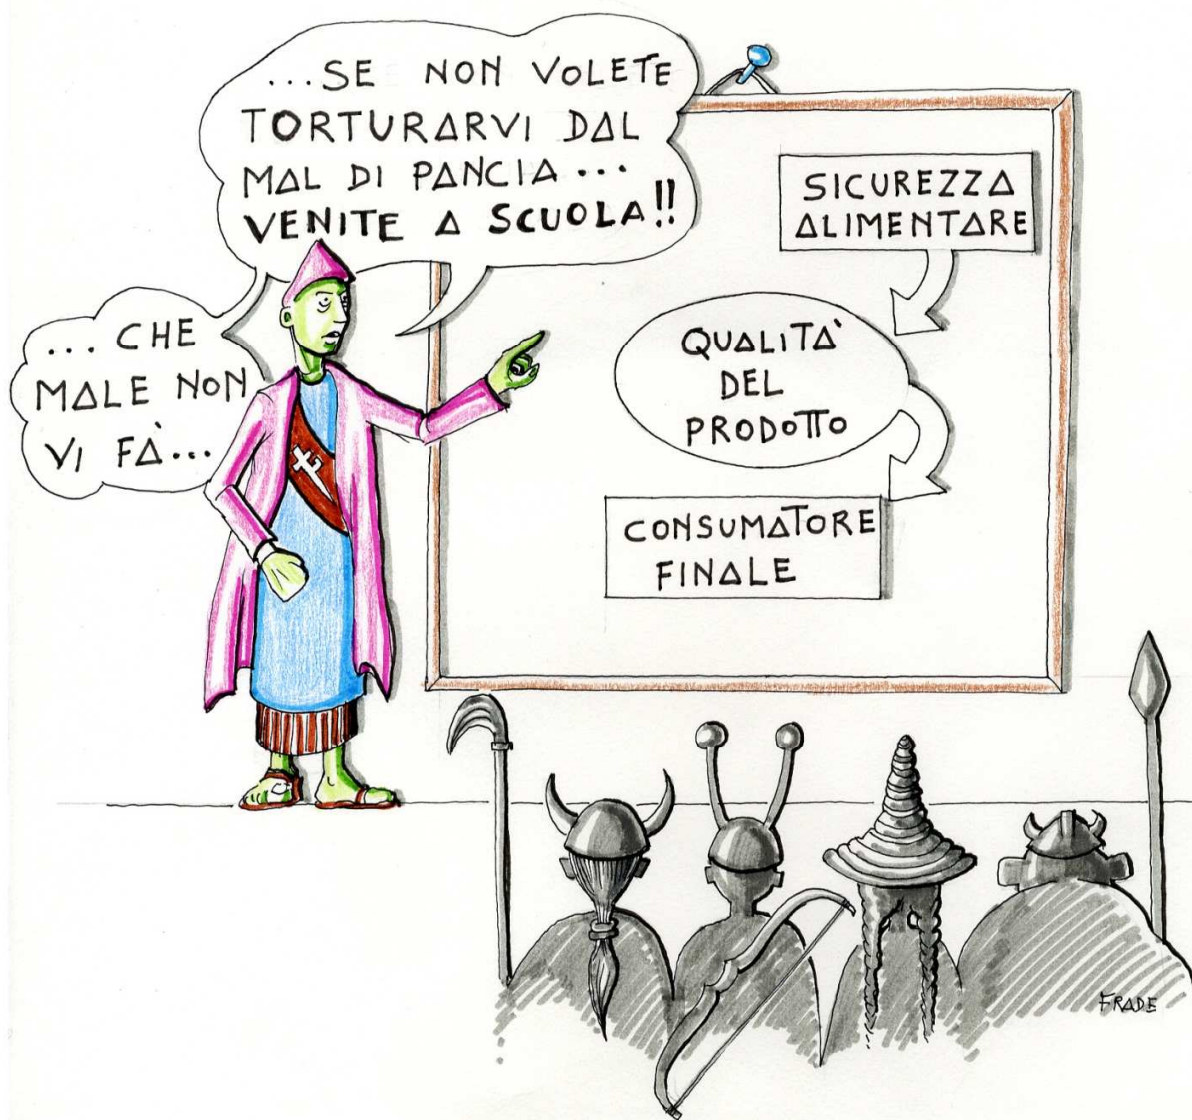 ...SE NON VOLETE
TORTURARVI DAL
MAL DI PANCIA...
VENITE A SCUOLA!!
...CHE
MALE NON
VI FÀ...
SICUREZZA
ALIMENTARE
QUALITA'
DEL
PRODOTTO
CONSUMATORE
FINALE
FRADE